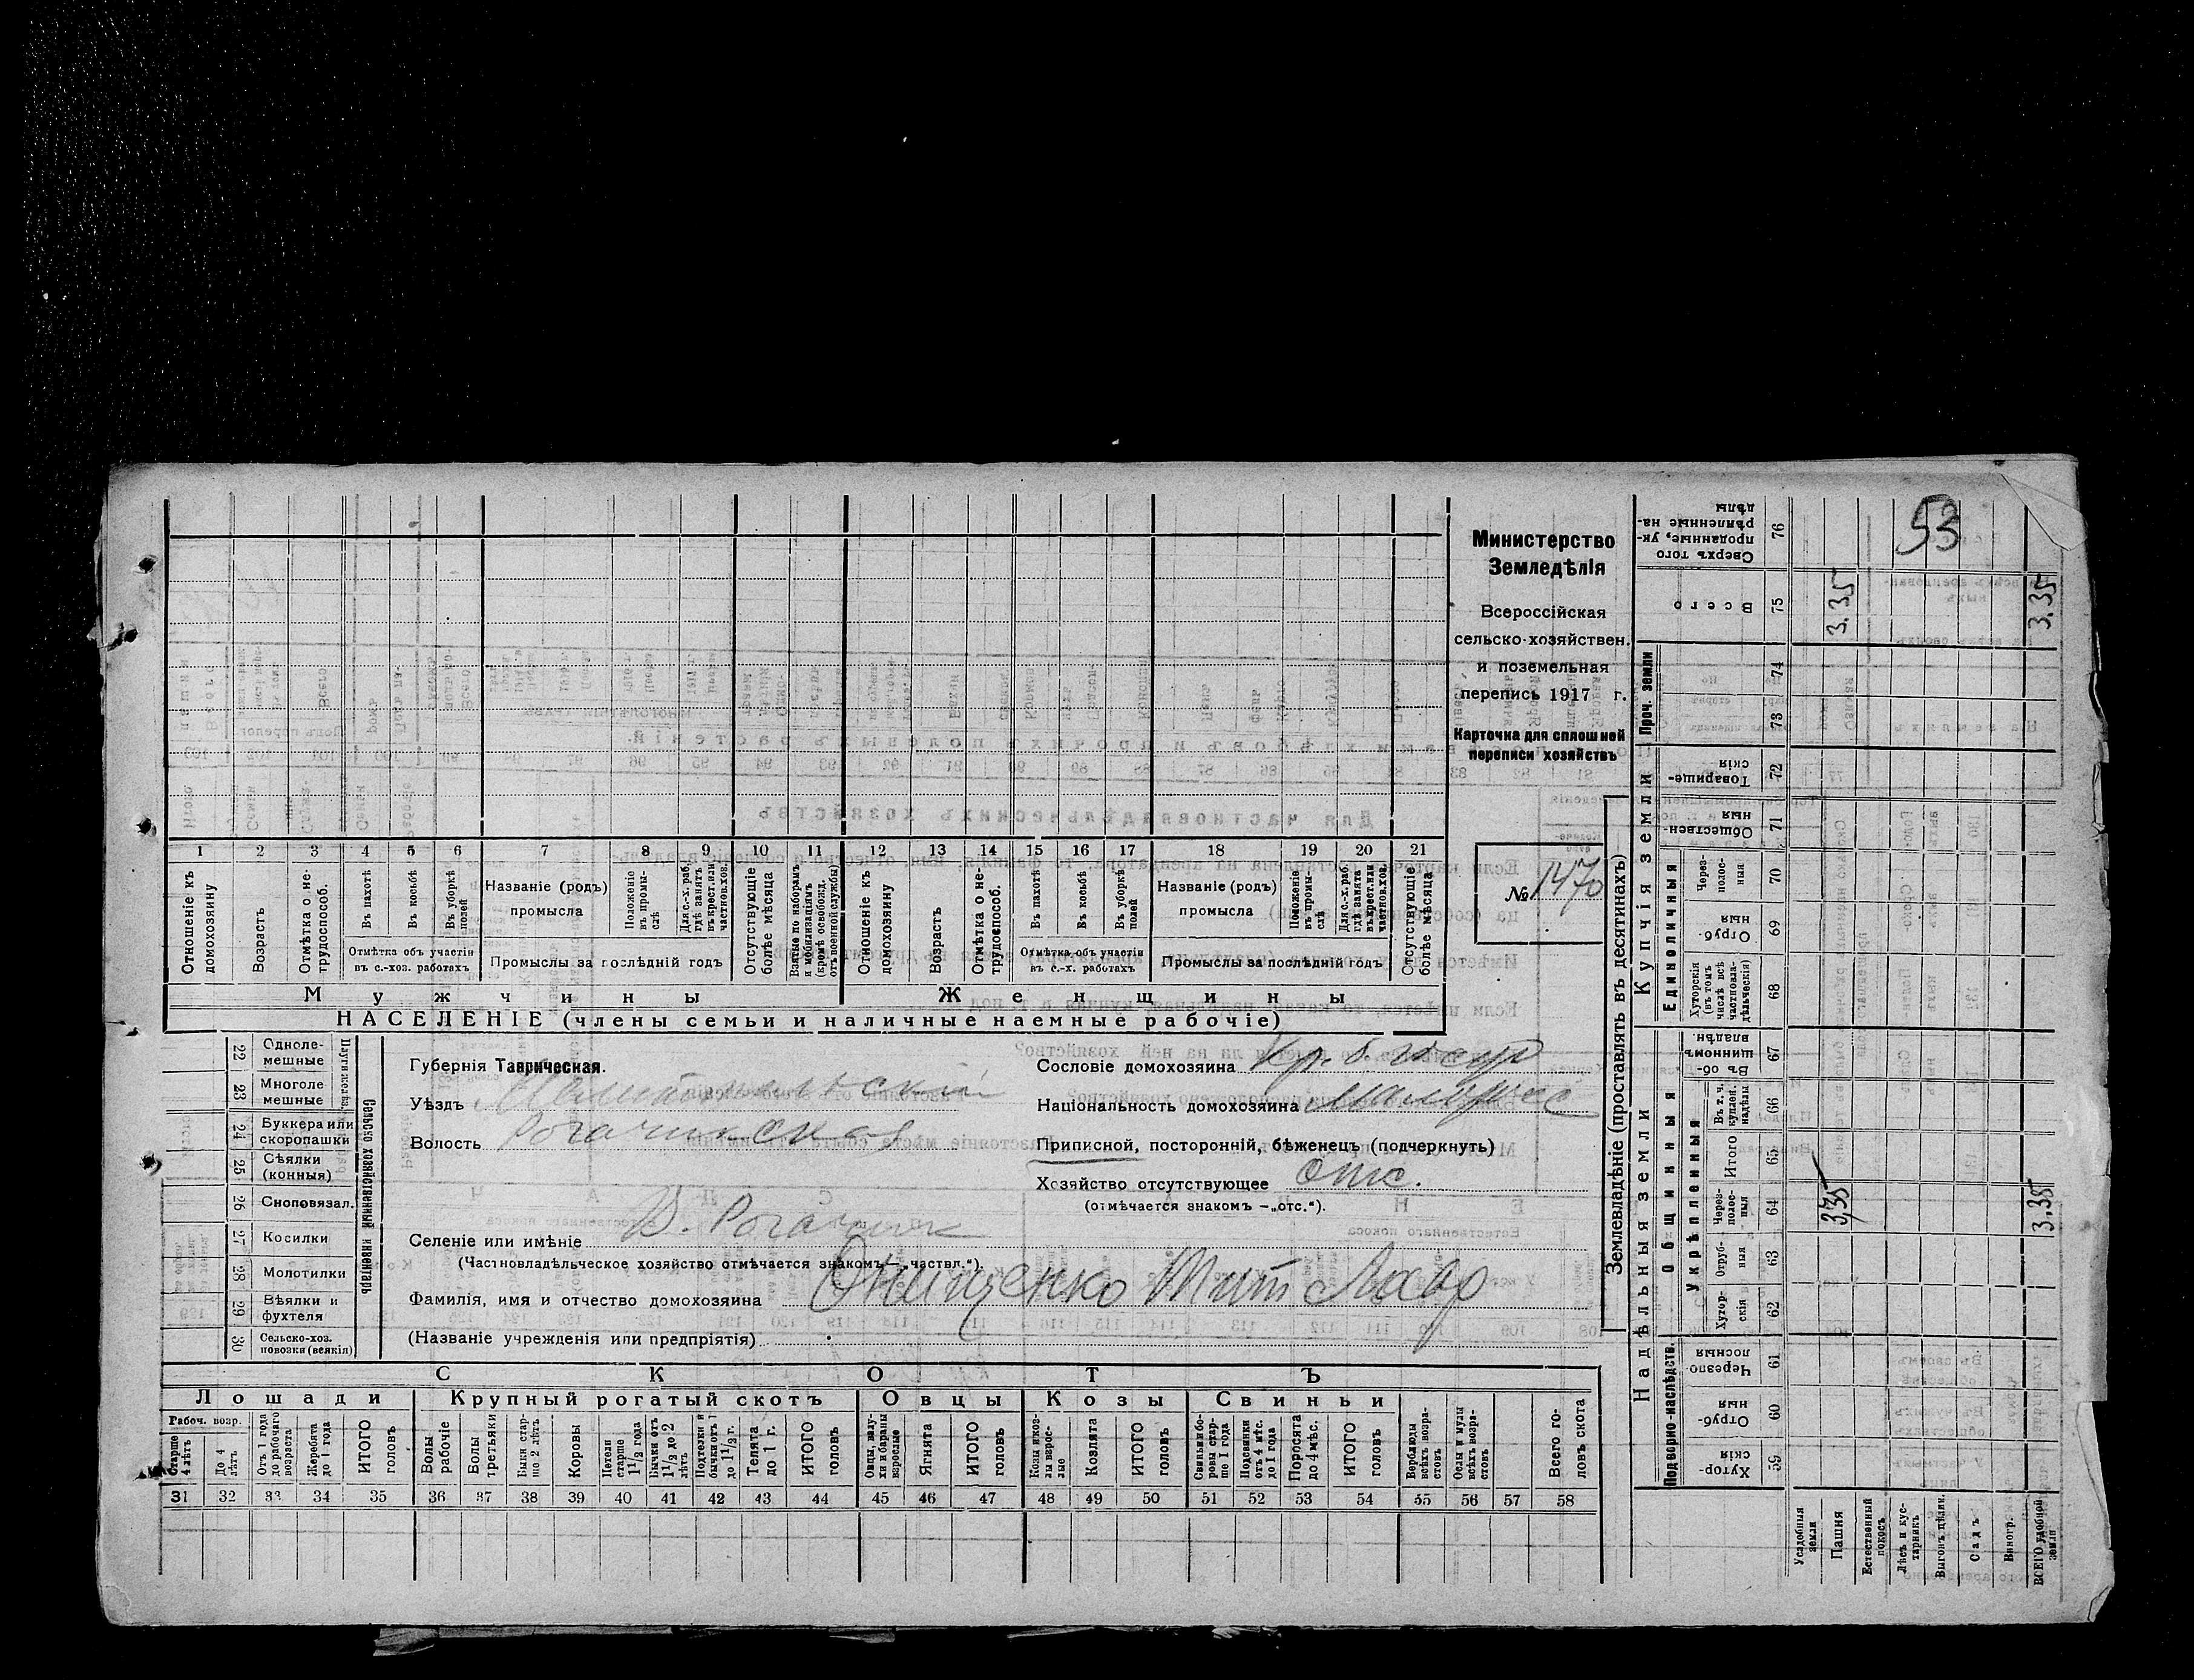 53
Министерство
Земледѣлія
Всероссійская
сельско-хозяйствен.
и поземельная
перепись 1917 г.
Карточка для сплошней
переписи хозяйствъ
№ 1470
1 2 3 4 5 6 7 8 9 10 11 12 13 14 15 16 17 18 19 20 21
Отношеніе къ домохозяину
Возрасть
Отмѣтка о не-трудоспособ.
Въ пахотѣ
Въ косьбѣ
Въ уборкѣ полей
Отмѣтка объ участіи въ с.-хоз. работахъ
Названіе (родъ) промысла
Положеніе въ промы-слѣ
Для с.-х. раб. гдѣ занятъ въ крест. или частнов. хоз.
Промыслы за послѣдній годъ
Отсутствующіе болѣе мѣсяца
Взятые по наборамъ и мобилизаціямъ (кромѣ освобожд. отъ военной службы)
Отношеніе къ домохозяину
Возрастъ
Отмѣтка о не-трудоспособ.
Въ пахотѣ
Въ косьбѣ
Въ уборкѣ полей
Отмѣтка объ участіи въ с.-х. работахъ
Названіе (родъ) промысла
Положеніе въ промы-слѣ
Для с.-х. раб. гдѣ занята въ крест. или частнов. хоз.
Промыслы за послѣдній годъ
Отсутствующіе болѣе мѣсяца
Мужчины
Женщины
НАСЕЛЕНІЕ (члены семьи и наличные наемные рабочіе)
22 Одноле-мешные
23 Многоле мешные
24 Буккера или скоропашки
25 Сѣялки (конныя)
26 Сноповязал.
27 Косилки
28 Молотилки
29 Вѣялки и фухтеля
30 Сельско-хоз. повозки (всякія)
Сельско хозяйственный инвентарь
Губернія Таврическая.
Уѣздъ Мелитопольскій
Волость Рогачикская
Сословіе домохозяина
Національность домохозяина Малорос
Приписной, посторонній, бѣженецъ (подчеркнуть)
Хозяйство отсутствующее отс.
(отмѣчается знакомъ —„отс.“).
Селеніе или имѣніе В. Рогачик
(Частновладѣльческое хозяйство отмѣчается знакомъ—„частвл.“).
Фамилія, имя и отчество домохозяина Онищенко Тит Лавр
(Названіе учрежденія или предпріятія)
СКОТЪ
Лошади
Крупный рогатый скотъ
Овцы
Козы
Свиньи
Рабоч. возр.
Старше 4 лѣтъ
До 4 лѣтъ
Отъ 1 года до рабочаго возраста
Жеребята до 1 года
ИТОГО головъ
Волы рабочіе
Волы третьяки
Быки стар-ше 2 лѣтъ
Коровы
Нетели старше 1½ года
Бычки отъ 1½ до 2 лѣтъ
Подтелки и бычки отъ 1 до 1½ г.
Телята до 1 г.
ИТОГО головъ
Овцы, валу-хи и бараны взрослые
Ягнята
ИТОГО головъ
Козы и коз-лы взрос-лые
Козлята
ИТОГО головъ
Свиньи бо-ровы стар-ше 1 года
Подсвинки отъ 4 мѣс. до 1 года
Поросята до 4 мѣс.
ИТОГО головъ
Верблюды всѣхъ возра-стовъ
Ослы и мулы всѣхъ возра-стовъ
Всего го-ловъ скота
31 32 33 34 35 36 37 38 39 40 41 42 43 44 45 46 47 48 49 50 51 52 53 54 55 56 57 58
Землевладѣніе (проставлять въ десятинахъ)
Надѣльныя земли
Купчія земли
Проч. земли
Подворно-наслѣдств.
Общинныя
Укрѣпленныя
Единоличныя
Хутор-скія 59
Отруб-ныя 60
Черезпо лосныя 61
Хутор-скія 62
Отруб-ныя 63
Через-полос-ныя 64
Итого 65
Въ т. ч. куплен. надѣлы 66
Въ об-щинномъ владѣн. 67
Хуторскія (въ томъ числѣ всѣ частновла-дѣльческія) 68
Отруб-ныя 69
Через-полос-ныя 70
Обществен-ныя 71
Товарище-скія 72
73
74
Всего 75
Сверхъ того проданные, ук-рѣпленные на-дѣлы 76
Усадебныя земли
Пашня 3,35 3.35
Естественный покосъ
Лѣсъ и кус-тарникъ
Выгонъ дѣлин.
Садъ
Виногр.
ВСЕГО удобной земли 3,35 3.35